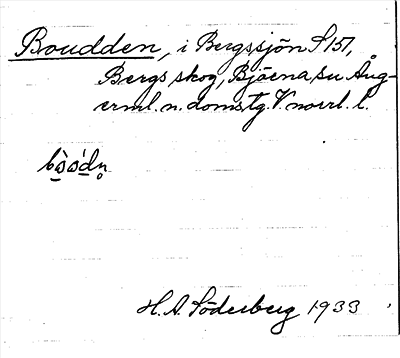 Boudden, i Bergssjön S151,
Bergs skog, Bjärna sn Ång-
erml. n. doms.tg. V. norrl. l.
H. A. Söderberg 1933